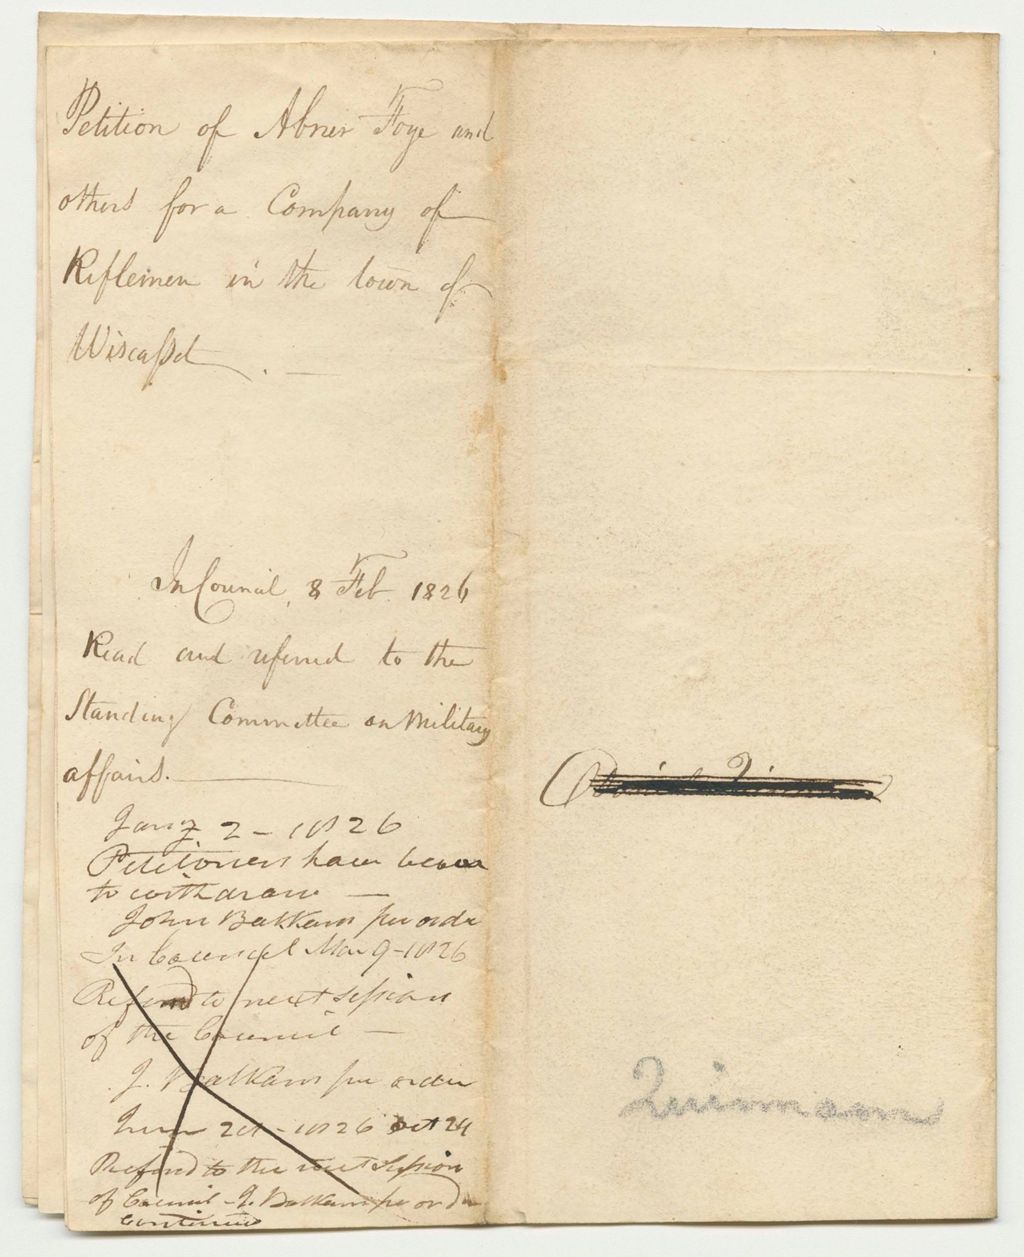 Petition of Abner Foye and
others for a Company of
Riflemen in the town of
Wiscasset.
In Council, 8 Feb. 1826
Read and referred to the
Standing Committee on Military
affairs.
2 - 1826
Petitioners have leave
to withdraw
John Balkam per order
In Council Mar 9 - 1826
Referred to next session
of the Council
J. Balkam per order
1826 Oct 24
Referred to the next Session
of Council - J. Balkam per order
continued